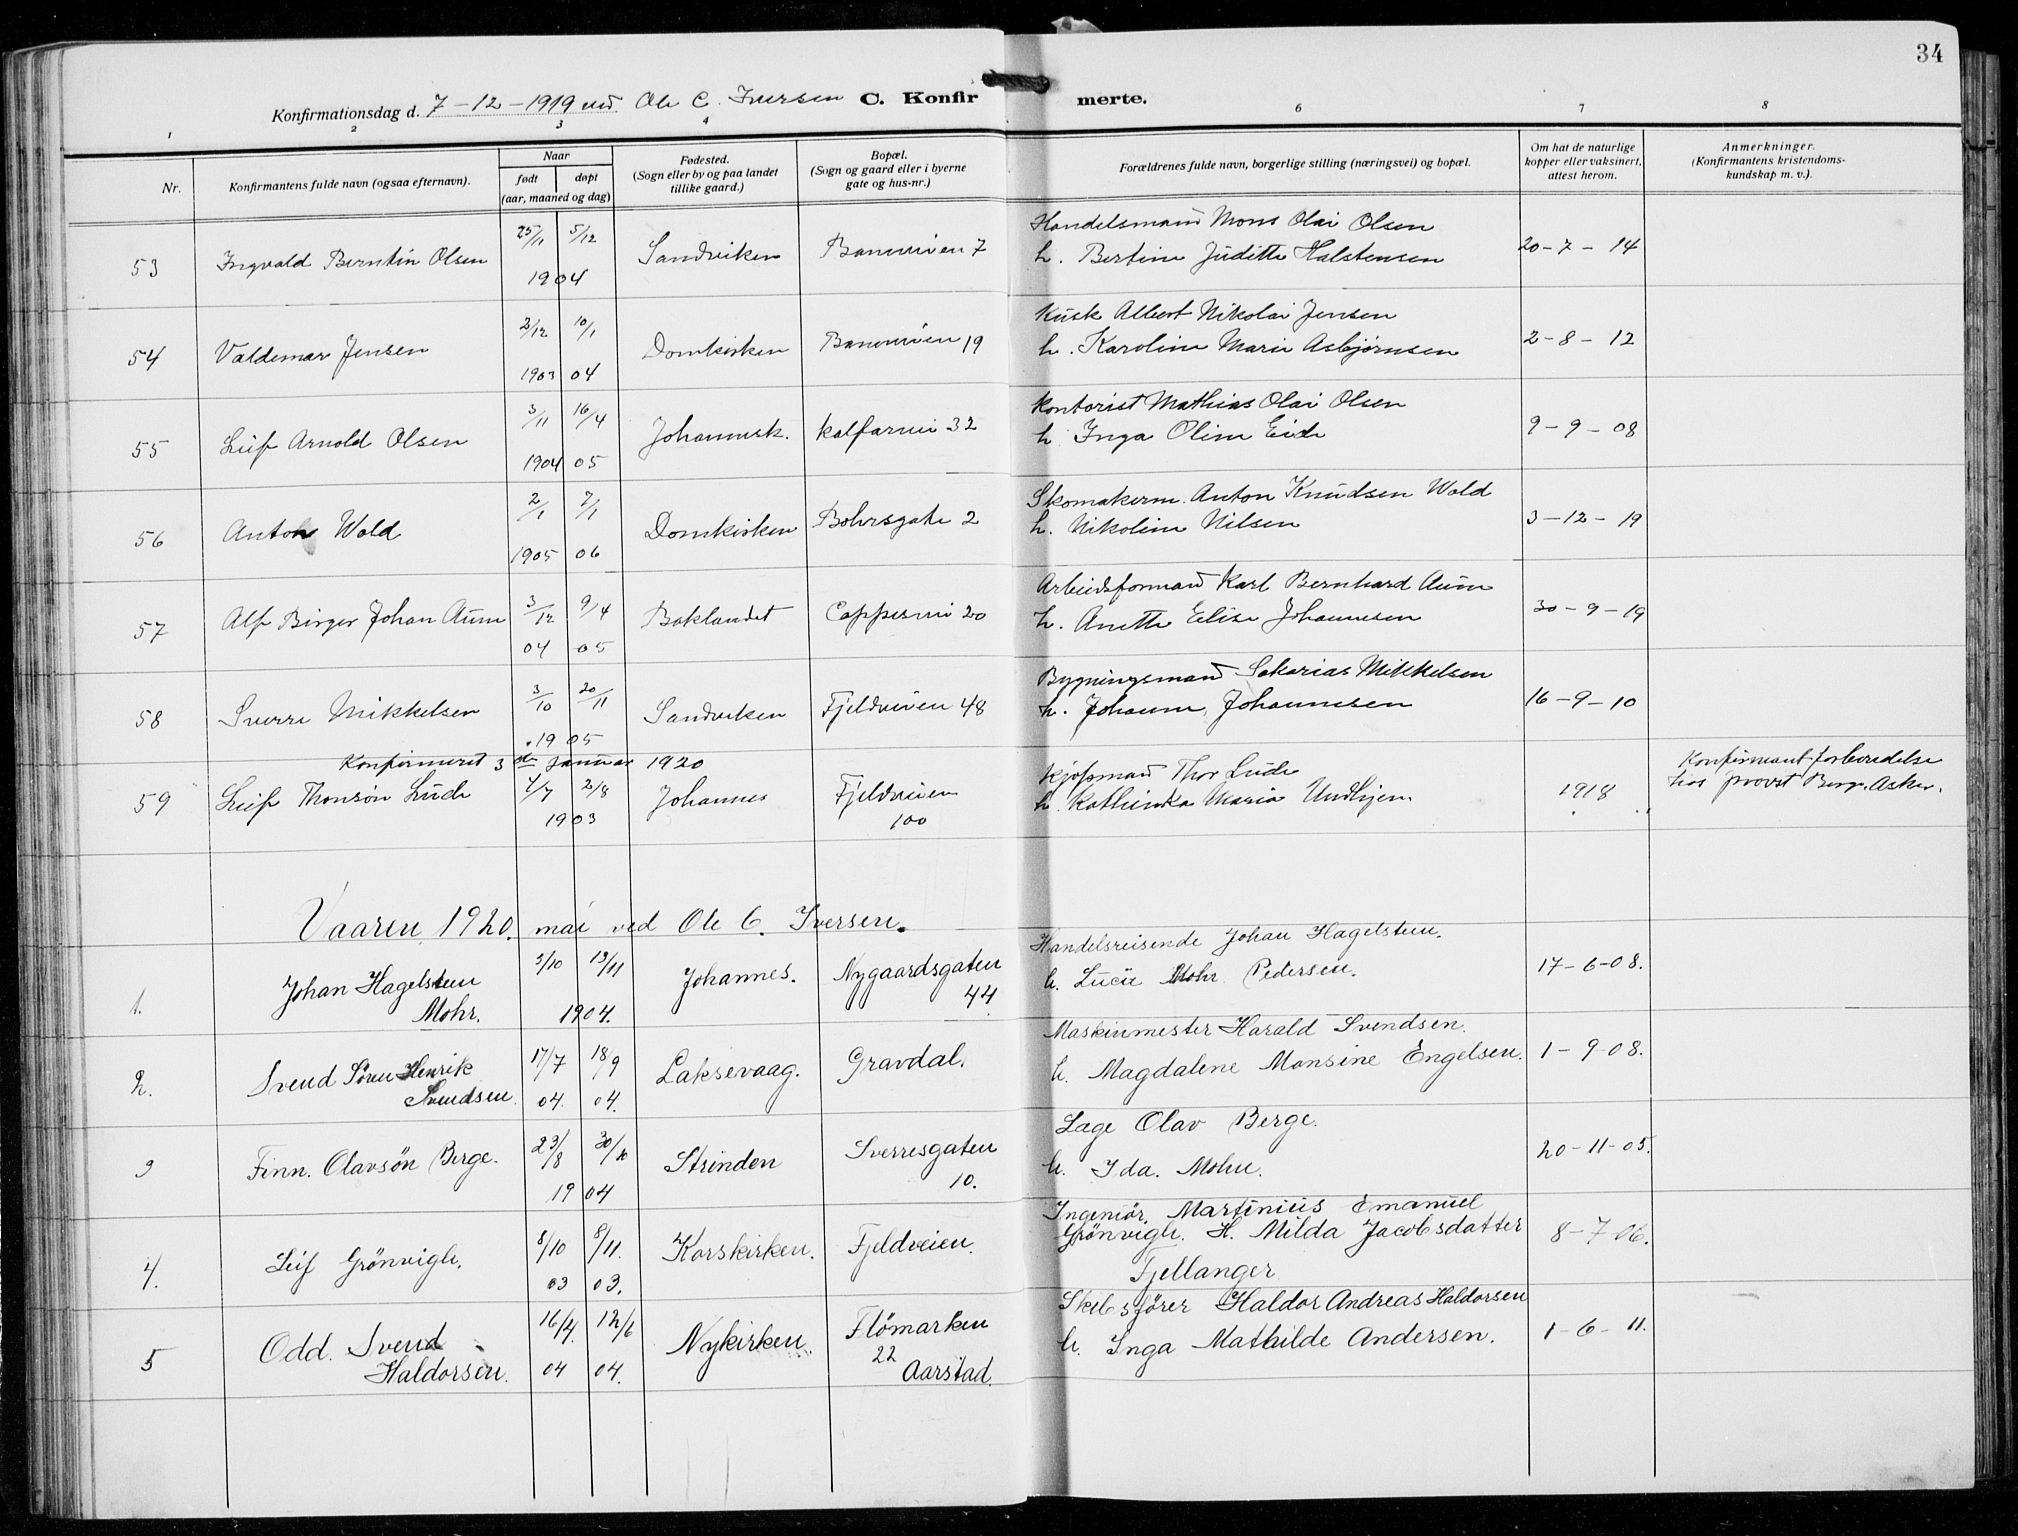 34
Konfirmationsdag d. 7-12-1919 ved Ole C. Iversen C. Konfirmerte.
1 2 3 4 6 7 8
Nr.
Konfirmantens fulde navn (ogsaa efternavn).
Naar
født døpt
(aar, maaned og dag)
Fødested.
(Sogn eller by og paa landet
tillike gaard.)
Bopæl.
(Sogn og gaard eller i byerne
gate og hus-nr.)
Forældrenes fulde navn, borgerlige stilling (næringsvei) og bopæl.
Om hat de naturlige
kopper eller vaksinert,
attest herom.
Anmerkninger.
(Konfirmantens kristendoms-
kundskap m. v.).
53 Ingvald Berntin Olsen 25/11 5/12 1904 Sandviken Baneveien 7
Handelsmand Mons Olai Olsen
h. Bertine Juditte Halstensen 20-7-14
54 Valdemar Jensen 2/12 10/1 1903 04 Domkirken Baneveien 19
Kusk Albert Nikolai Jensen
h. Karoline Marie Asbjørnsen 2-8-12
55 Leif Arnold Olsen 3/11 16/4 1904 05 Johannesk. Kalfarvei 32
Kontorist Mathias Olai Olsen
h. Inga Oline Eide 9-9-08
56 Anton Wold 2/1 7/1 1905 06 Domkirken Bohrsgate 2
Skomakerm. Anton Knudsen Wold
h. Nikoline Nilsen 3-12-19
57 Alf Birger Johan Aune 3/12 9/4 04 05 Baklandet Cappesvei 20
Arbeidsformand Karl Bernhard Aune
h. Anette Elise Johannesen 30-9-19
58 Sverre Mikkelsen 3/10 20/11 1905 Sandviken Fjeldveien 48
Bygningsmand Sakarias Mikkelsen
h. Johanne Johannesen 16-9-10
Konfirmeret 3 die januar 1920
59 Leif Thorsøn Lude 4/7 2/8 1903 Johannes Fjeldveien
100
Kjøpmand Thor Lude
h. Kathinka Maria Undhjem. 1918
Konfirmant-forberedelse
hos provst Berg. Asker.
Vaaren 1920. mai ved Ole C. Iversen.
1. Johan Hagelsteen
Mohr. 5/10 13/11 1904. Johannes. Nygaardsgaten
44
Handelsreisende Johan Hagelsteen.
h. Lucie Mohr Pedersen. 17-6-08.
2. Svend Søren Henrik
Svendsen. 17/7 18/9 04. 04. Laksevaag. Gravdal.
Maskinmester Harald Svendsen.
h. Magdalene Monsine Engelsen. 1-9-08.
3 Finn. Olavsøn Berge. 23/8 30/10 1904 Strinden Sverresgaten
10.
Læge Olav Berge.
h. Ida. Mohn. 20-11-05.
4. Leif Grönvigh. 8/10 8/11. 03 03. Korskirken. Fjeldveien.
Ingeniör. Martinius Emanuel
Grönvigh. H. Milda Jacobsdatter
Fjellanger 8-7-06.
5 Odd. Svend
Haldorsen. 16/4. 12/6 04 04. Nykirken. Flömarken
22
Aarstad.
Skibsförer Haldor Andreas Haldorsen
h. Inga Mathilde Andersen. 1-6-11.